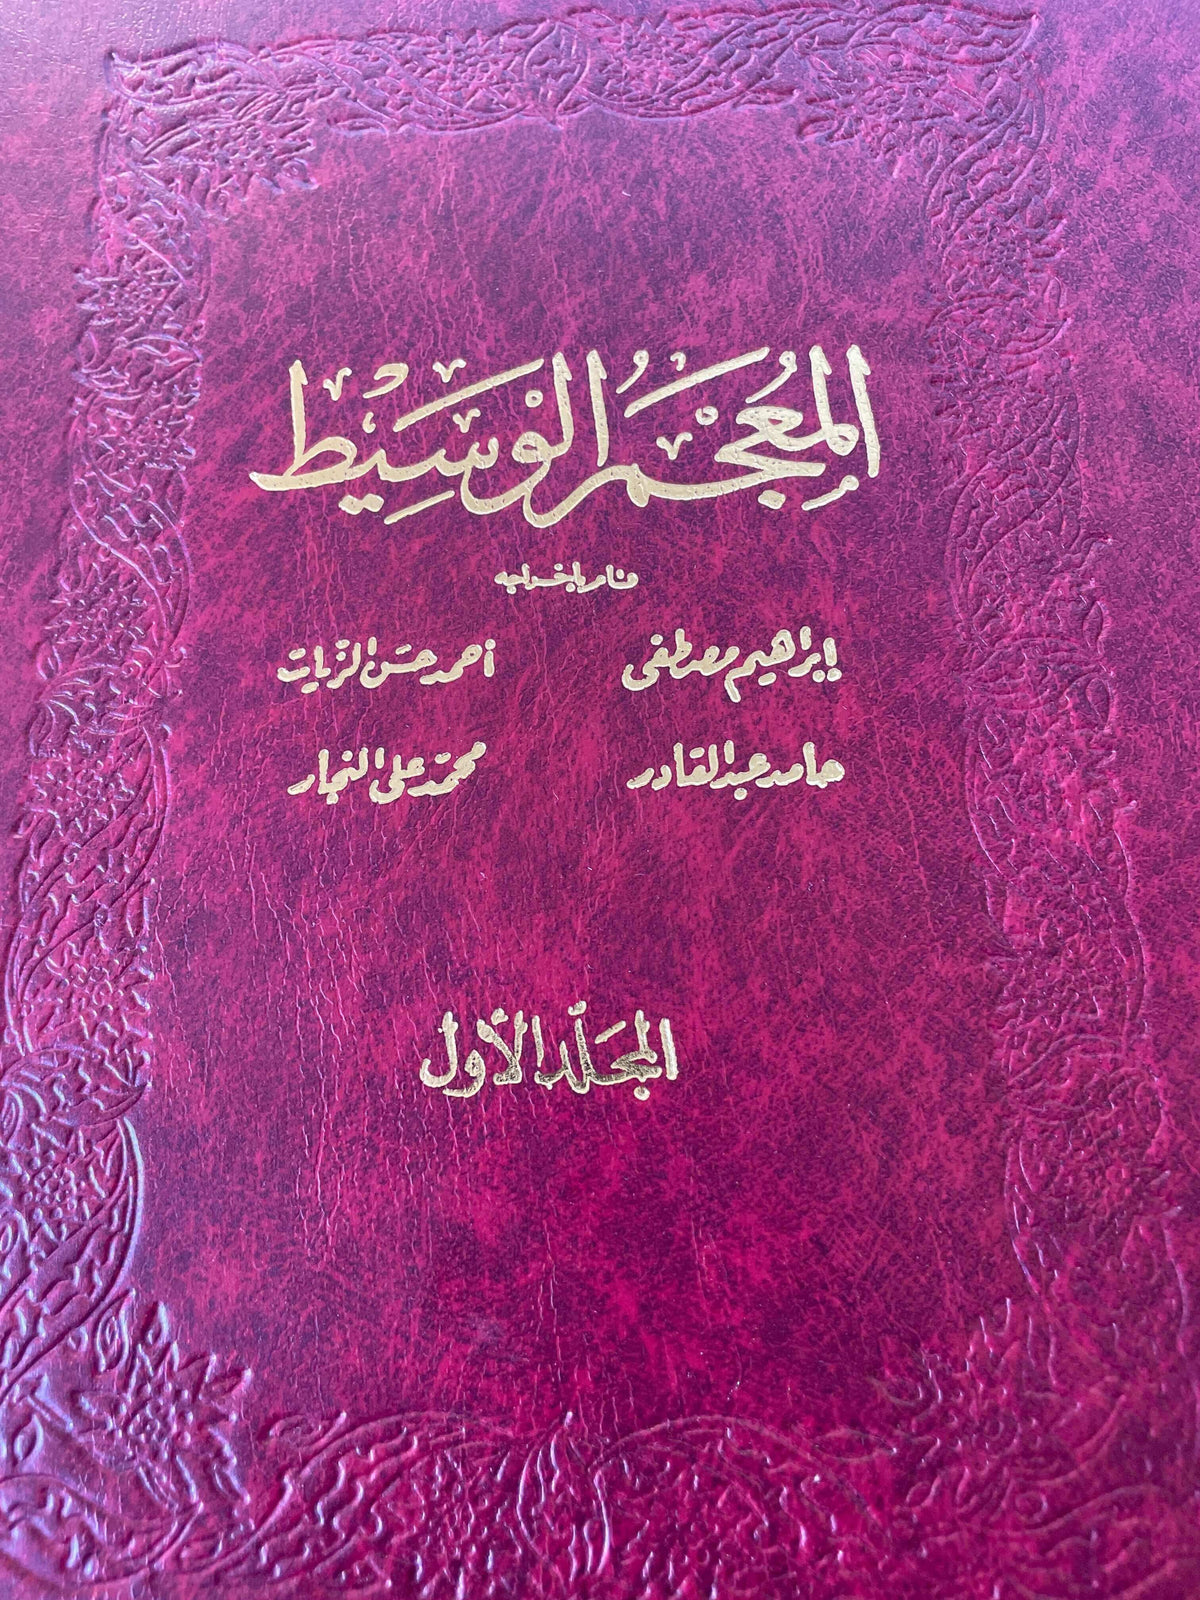 المُعْجَمُ الوَسِيط
قام بإخراجه
إبراهيم مصطفى أحمد حسَن الزّيات
حامد عبد القادر محمّد على النجار
المجَلّد الأول